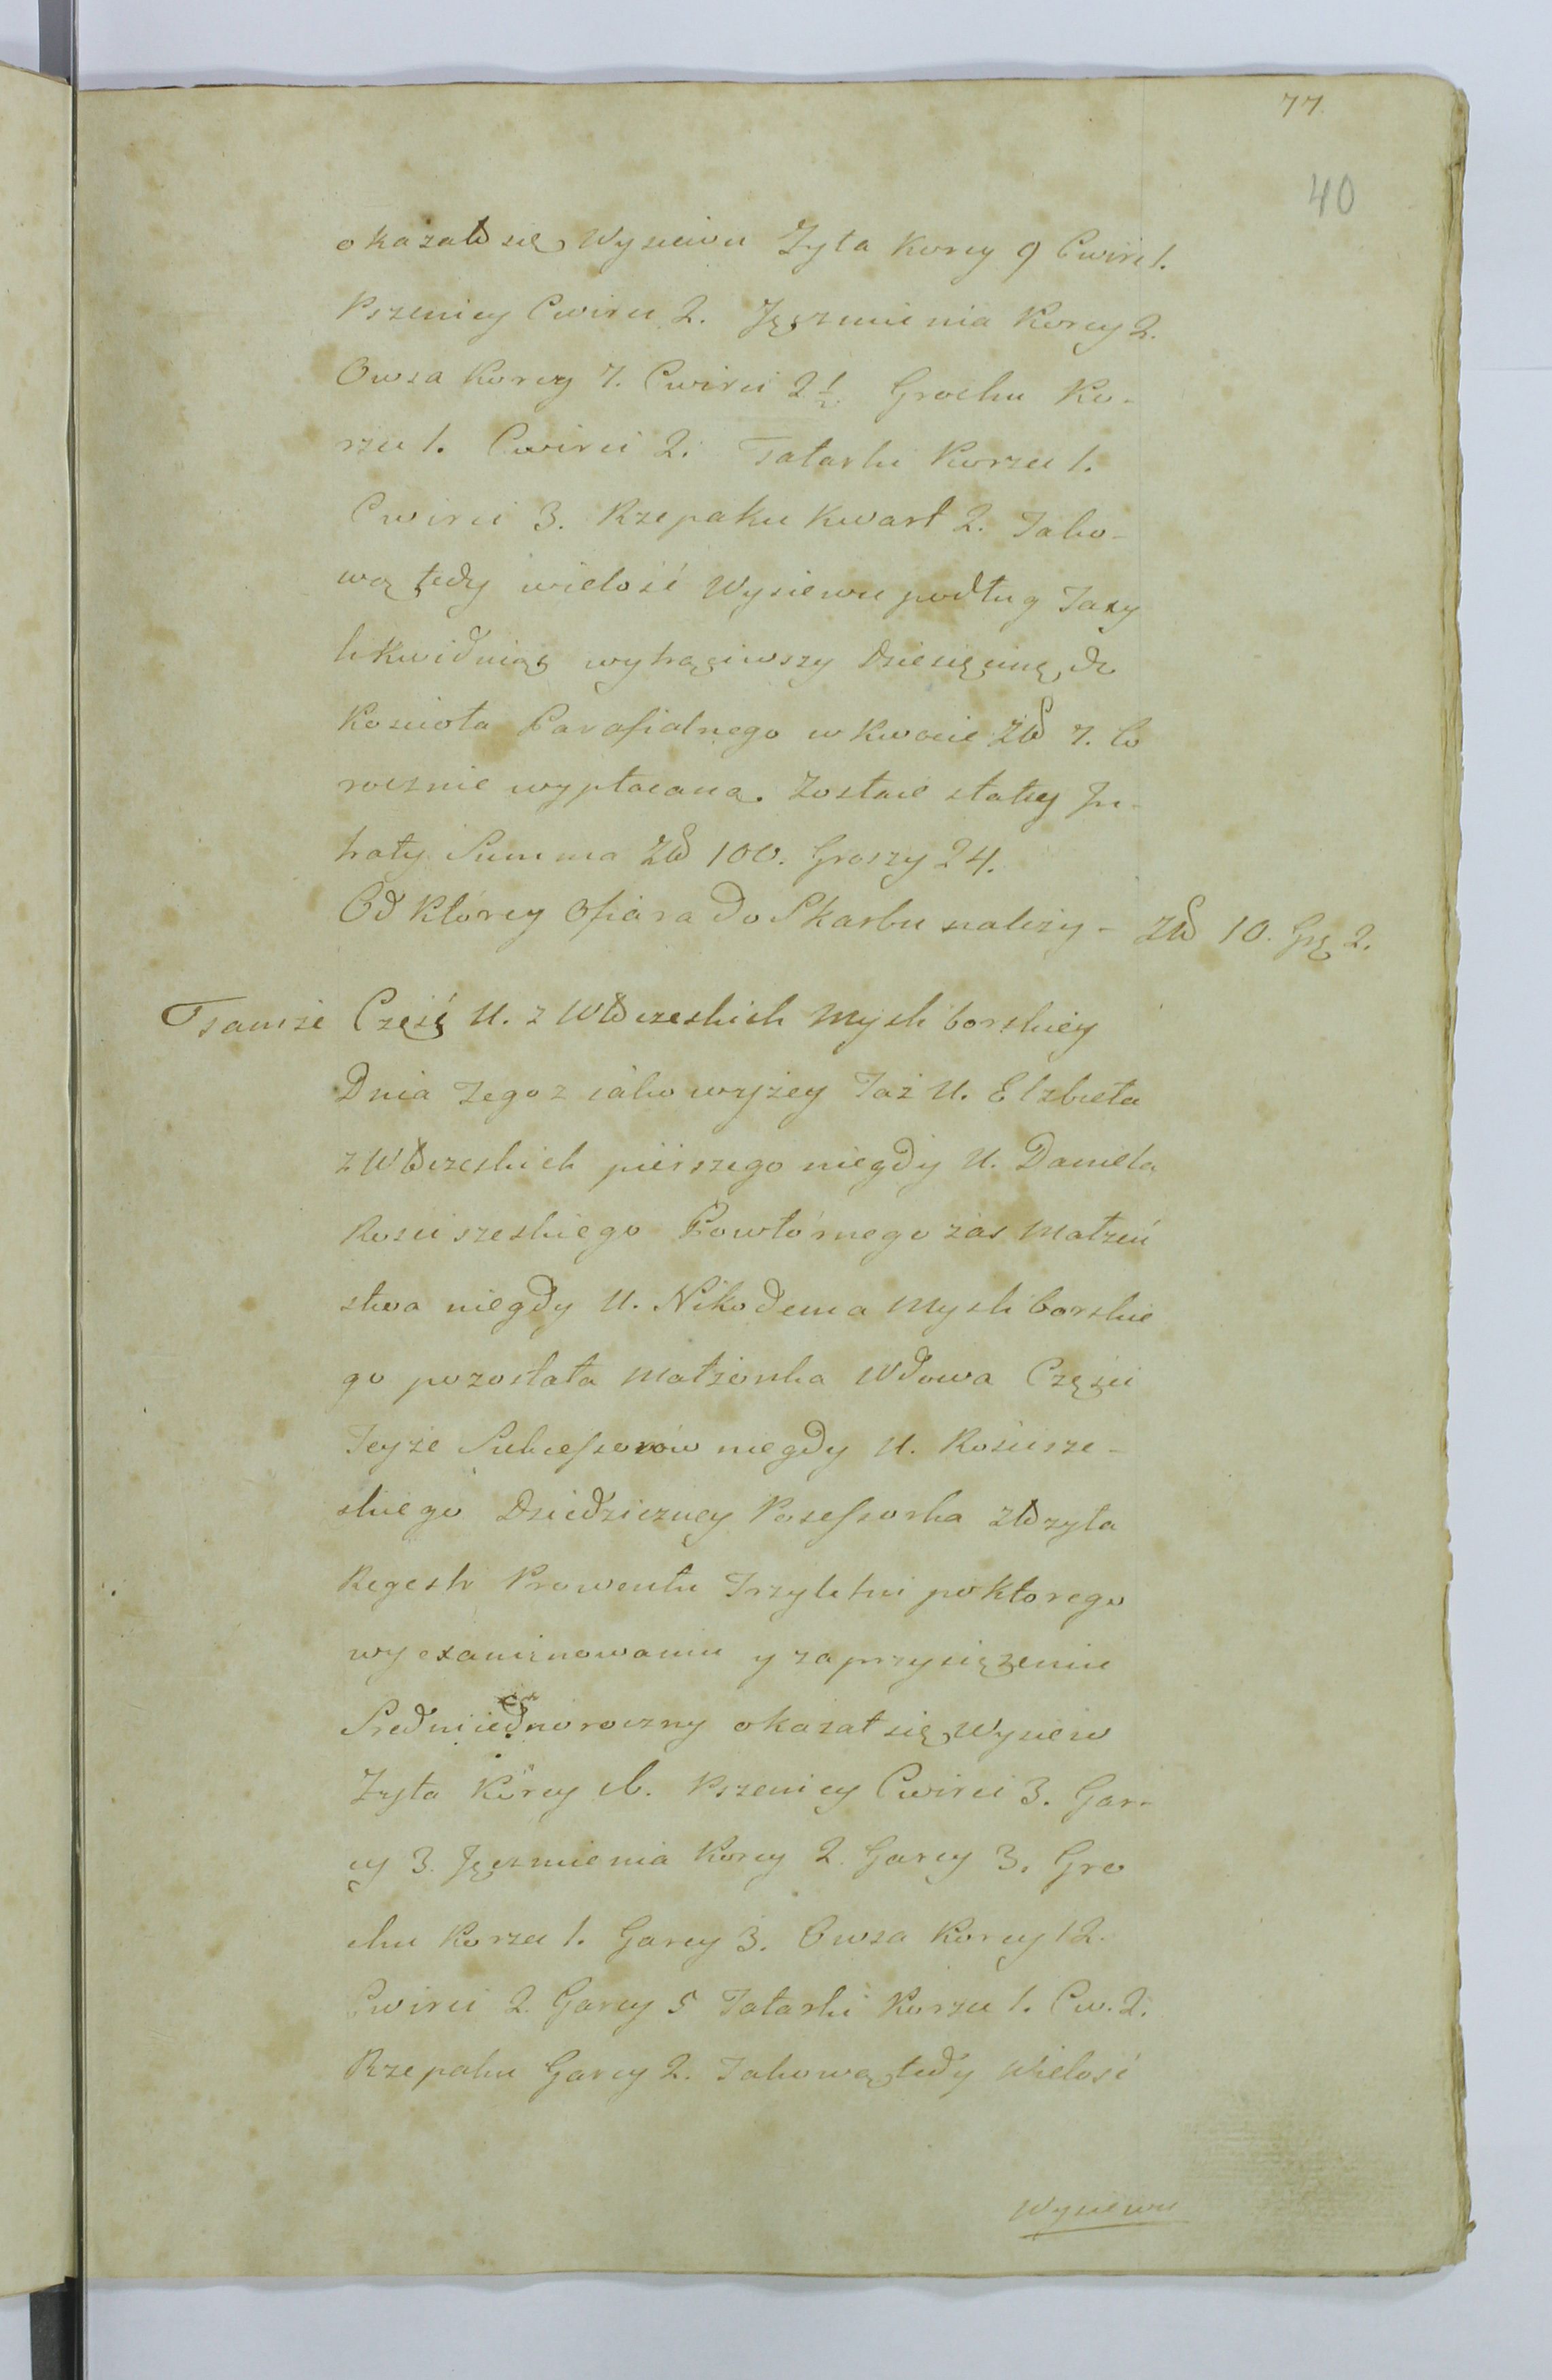 77.
40
okazał się Wysiewu Zyta Korcy 9 Cwirc 1.
Pszenicy Cwirci 2. Jęczmienia Korcy 2.
Owsa Korcy 7. Cwirci 2 1/2. Grochu Ko-
rzec 1. Cwirci 2. Tatarki Korzec 1.
Cwirci 3. Rzepaku Kwart 2. Tako-
wą tedy wielość Wysiewu podług Taxy
likwidując wytrąciwszy Dziesięcinę do
Koscioła Parafialnego w Kwocie Zł 7. co
rocznie wypłacaną. Zostaie stałey In-
traty Summa Zł 100. Groszy 24.
Od Ktorey Ofiara do Skarbu należy - Zł 10. Grę 2.
Tamże Część U. z Włczeskich Mysliborskiey
Dnia Tegoz iako wyżey Taż U. Elzbieta
z Włczeskich pierszego niegdy U. Daniela
Kosciszeskiego Powtórnego zas Małzeń
stwa niegdy U. Nikodema Mysliborskie
go pozostała Małżonka Wdowa Części
Teyże Sukcessorów niegdy U. Kościsze-
skiego Dziedziczney Possessorka złozyła
Regestr Prowentu Trzyletni po Ktorego
wyexaminowaniu y zaprzysiężeniu
Sredni iednoroczny okazał się Wysiew
Zyta Korcy Pszenicy Cwirci 3. Gar-
cy 3. Jęczmienia Korcy 2. Garcy 3. Gro
chu Korzec 1. Garcy 3. Owsa Korcy 12.
Cwirci 2. Garcy 5 Tatarki Korzec 1. Cw. 2.
Rzepaku Garcy 2. Takową tedy Wielość
Wysiewu